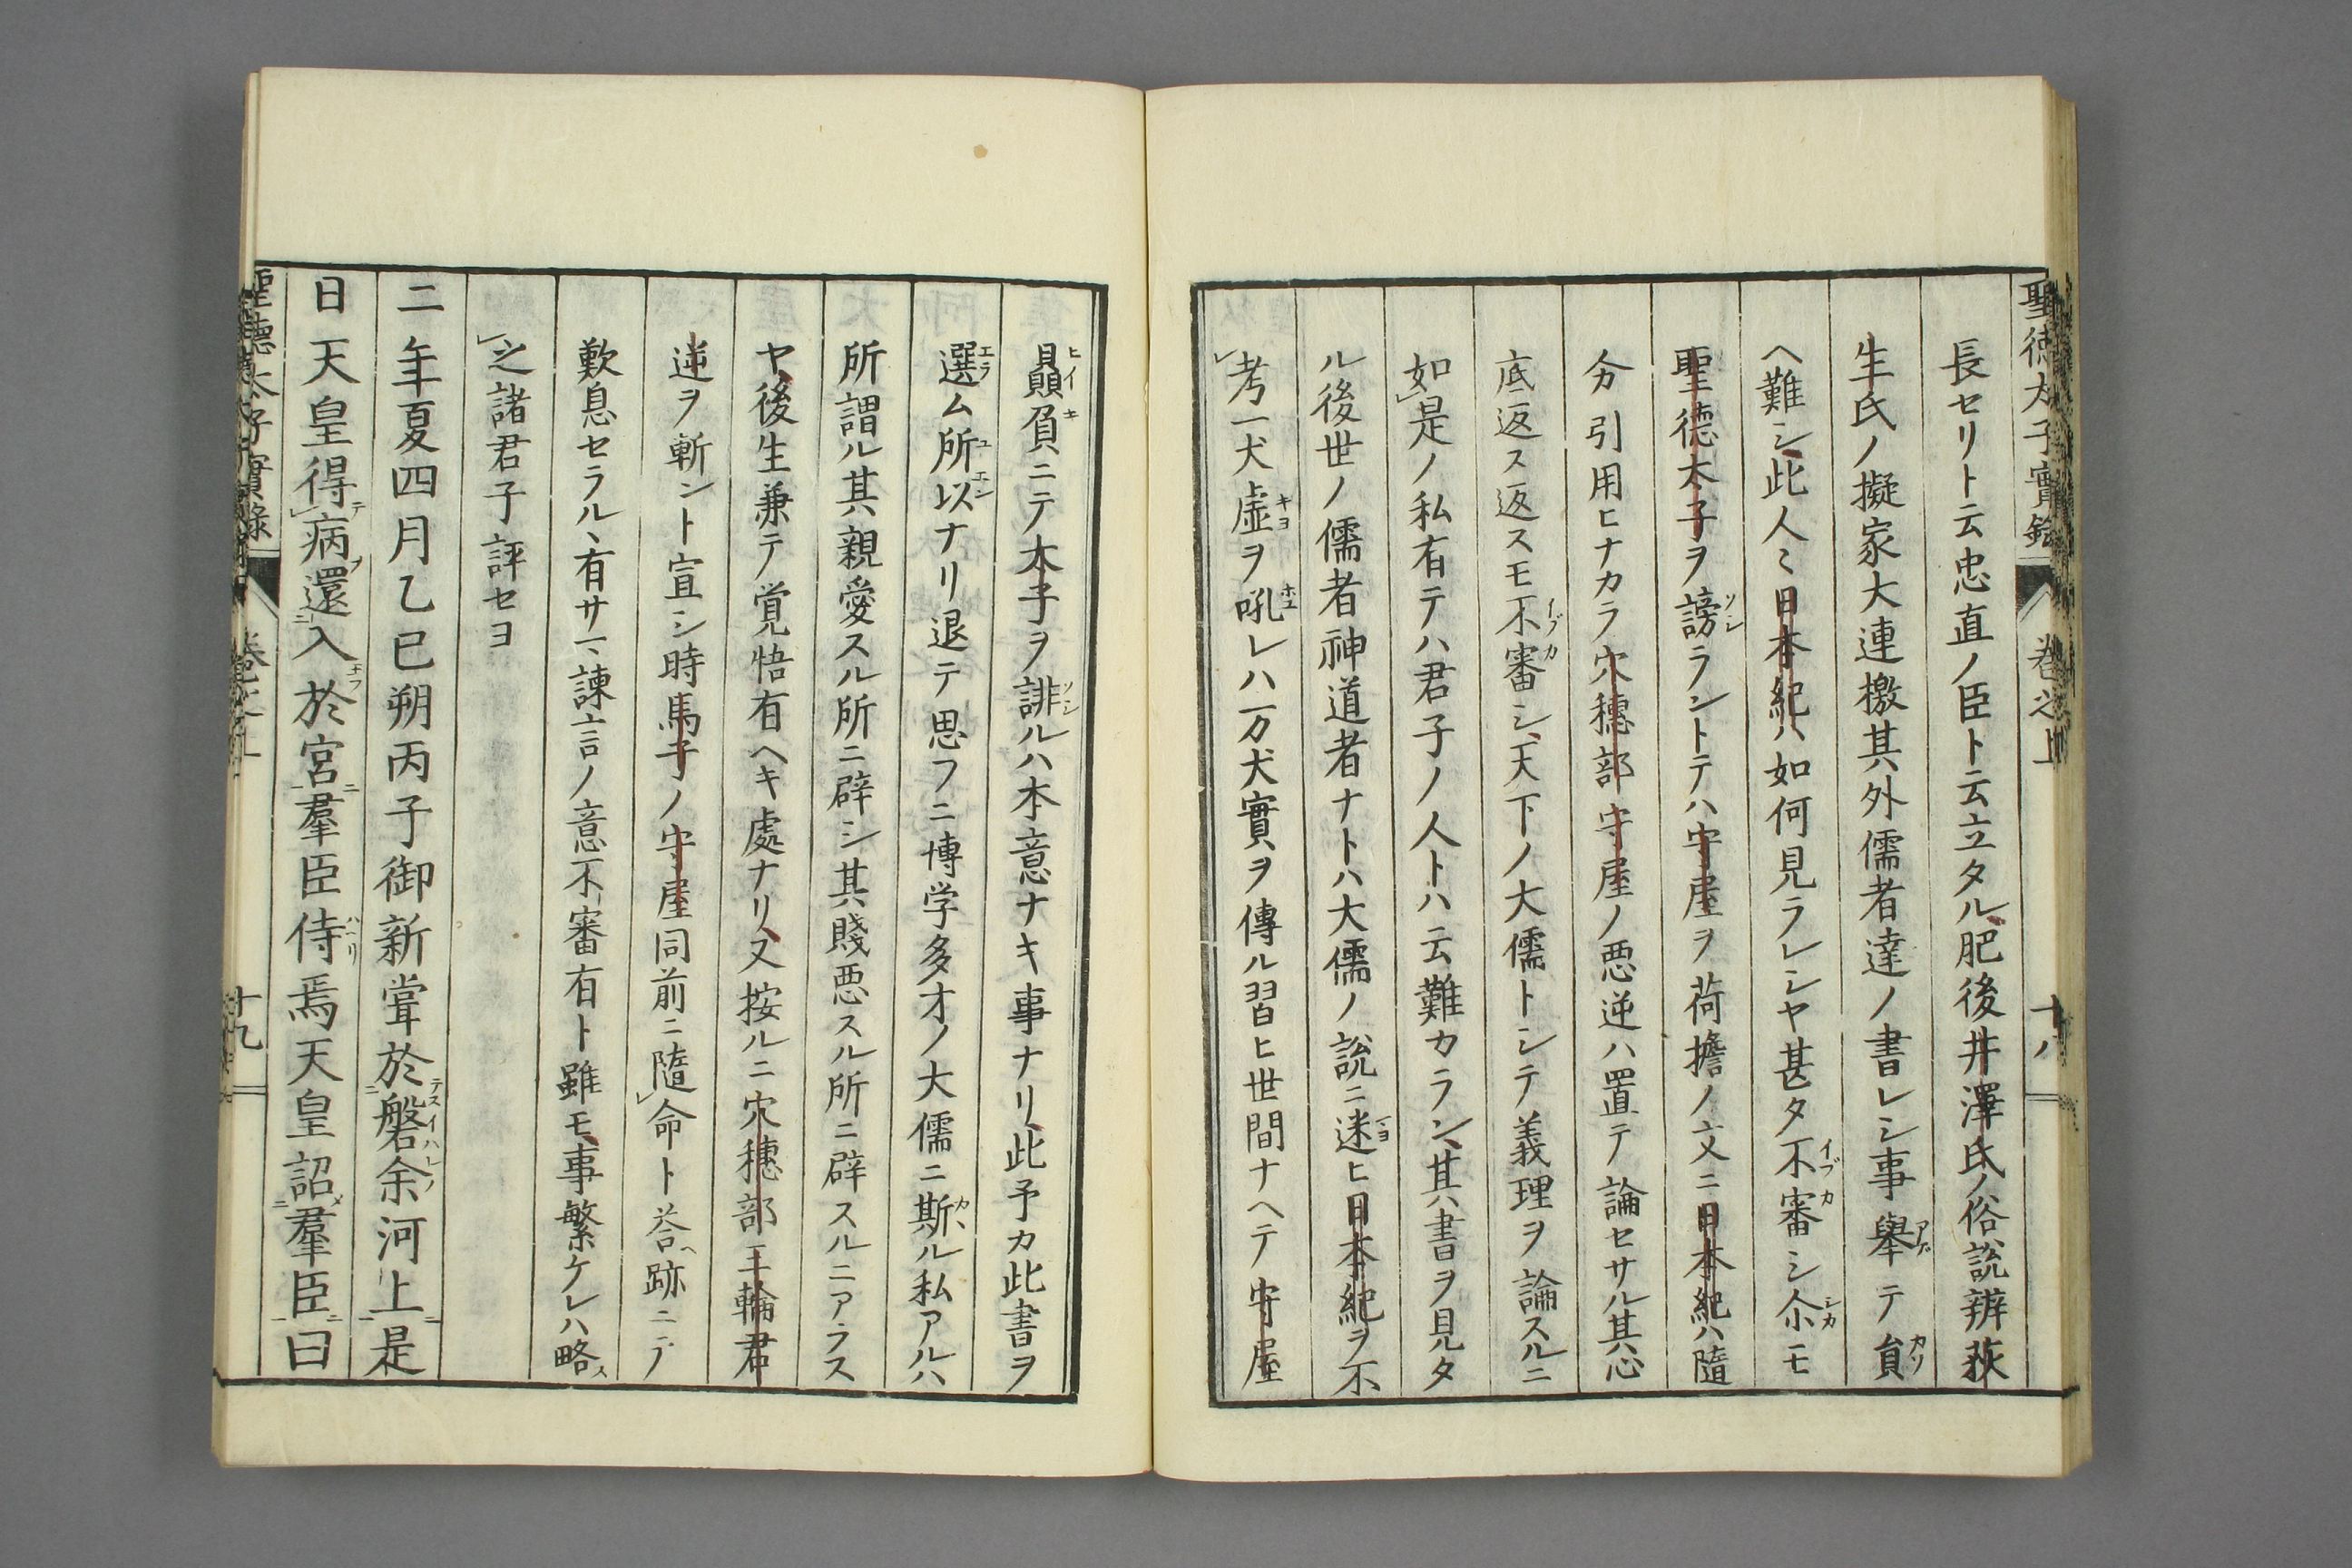 聖徳太子實録　巻之上　十八
長セリト云忠直ノ臣ト云立タル肥後井澤氏ノ俗説辨荻
生氏ノ擬家大連檄其外儒者達ノ書レシ事舉テ貟
ヘ難シ此人〻日本紀ハ如何見ラレシヤ甚タ不審シ尒モ
聖徳太子ヲ謗ラントテハ守屋ヲ荷擔ノ文ニ日本紀ハ隨
分引用ヒナカラ穴穗部守屋ノ悪逆ハ置テ論セサル其心
底返ス返スモ不審シ天下ノ大儒トシテ義理ヲ論スルニ
如是ノ私有テハ君子ノ人トハ云難カラン其書ヲ見タ
ル後世ノ儒者神道者ナトハ大儒ノ説ニ迷ヒ日本紀ヲ不
考一犬虚ヲ吼レハ一万犬實ヲ傳ル習ヒ世間ナヘテ守屋
贔負ニテ太子ヲ誹ルハ本意ナキ事ナリ此予カ此書ヲ
選ム所以ナリ退テ思フニ博学多才ノ大儒ニ斯ル私アルハ
所謂ル其親愛スル所ニ辟シ其賤悪スル所ニ辟スルニアラス
ヤ後生兼テ覚悟有ヘキ處ナリ又按ルニ穴穗部王輪君
逆ヲ斬ント宣シ時馬子ノ守屋同前ニ隨命ト荅跡ニテ
歎息セラル丶有サマ諫言ノ意不審有ト雖モ事繁ケレハ略
之諸君子評セヨ
二年夏四月乙巳朔丙子御新甞於磐余河上是
日天皇得病還入於宮羣臣侍焉天皇詔羣臣曰
聖德太子實錄　卷之上　十九